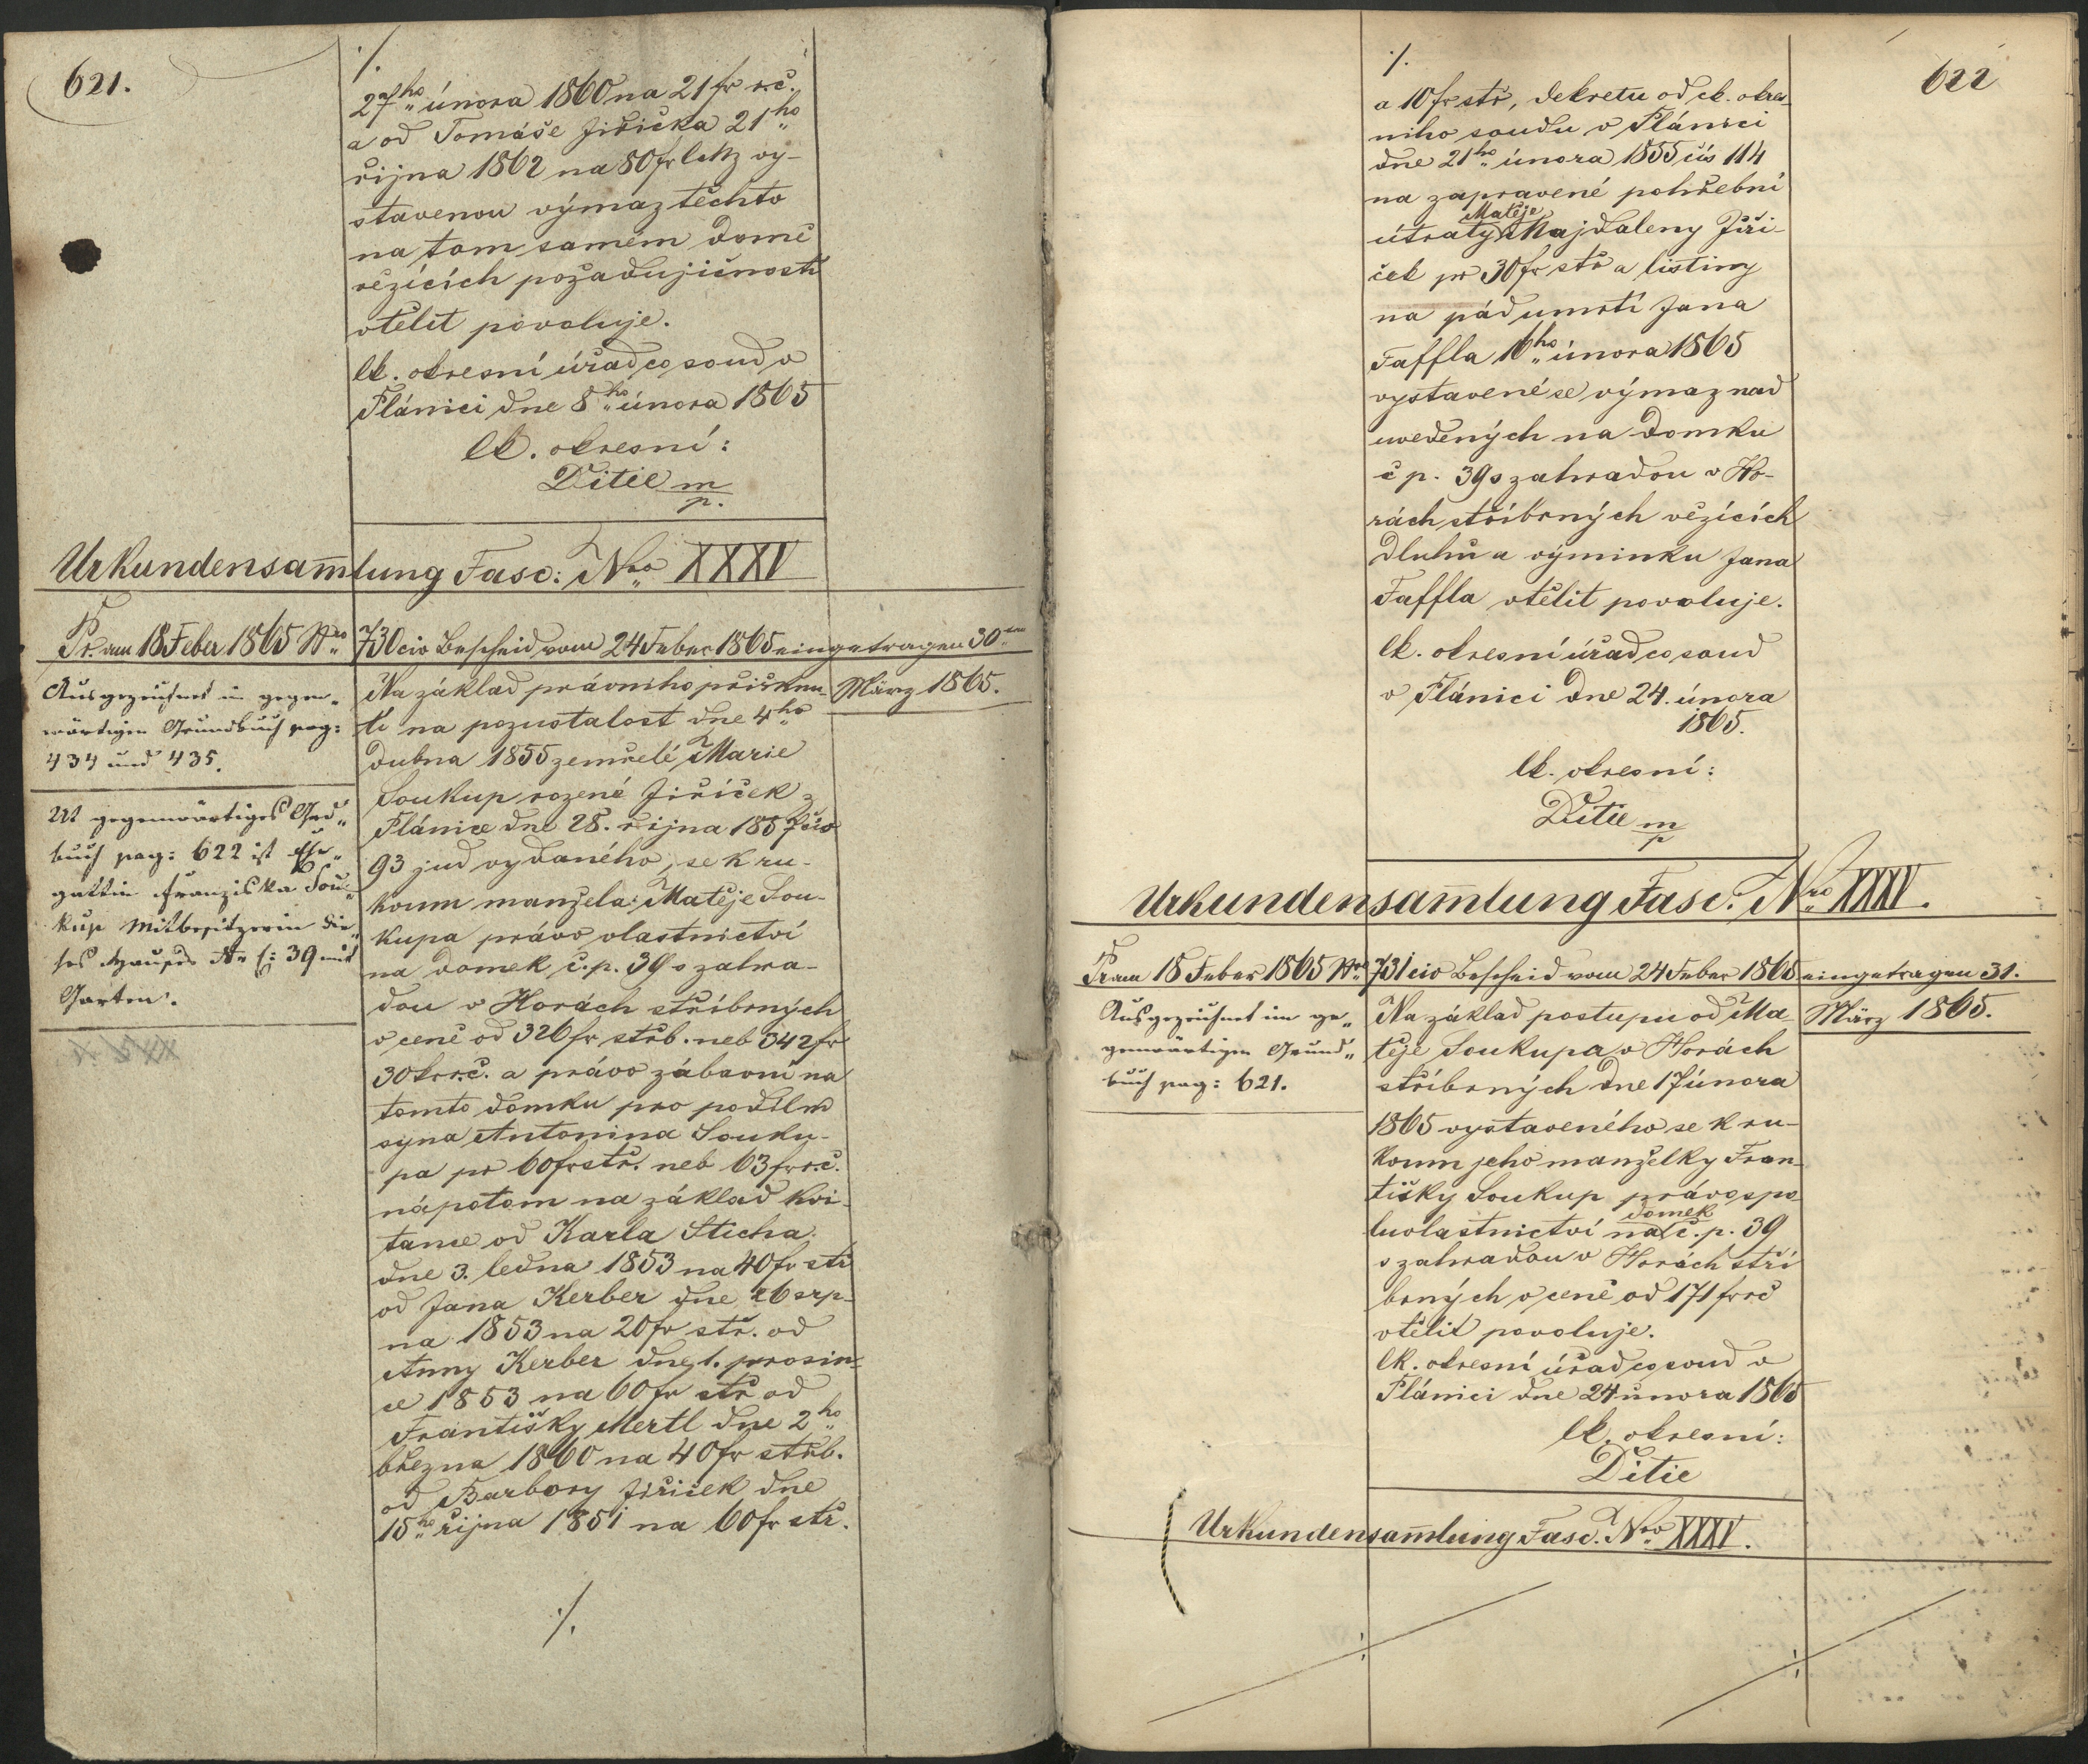 621.
./.
27ho února 1860 na 21 fr r.č.
a od Tomáše Jiřička 21ho
října 1862 na 80 fr CMz vy-
stavenou výmaz těchto
na tom samém domě
vězících požadujičností
vtělit povoluje.
Ck. okresní úřad co soud v
Plánici dne 8ho února 1865
Ck. okresní:
Ditie m/p.
Urkundensam̅lung Fasc: Nro XXXV
Pr. am 18 Feber 1865 Nro 730 civ Bescheid vom 24 Feber 1865 eingetragen 30ten
März 1865.
Ausgezeichnet in gegen„
wärtigen Grundbuch pag:
434 und 435.
Ut gegenwärtiges Gd„
buch pag: 622 ist Ehe„
gattin Franziska Sou„
kup Mitbesitzerin die„
ses Hauses Nro C: 39 mit
Garten.
Na základ právního přiřknu-
tí na pozustalost dne 4ho
Dubna 1855 zemřelé Marie
Soukup rozené Jiříček z
Plánice dne 28. října 1857 čís
93 jud vydaného, se k ru-
koum manžela: Matěje Sou-
kupa právo vlastnictví
na domek č.p. 39 s zahra-
dou v Horách stříbrných
v ceně od 326 fr střb. neb 342 fr
30 kr r.č. a právo zábavní na
tomto domku pro podílm
syna Antonina Souku-
pa pr 60 fr stř. neb 63 fr r.č.
nápotom na základ kvi-
tance od Karla Sticha
dne 3. ledna 1853 na 40 fr stř
od Jana Kerber dne 26 srp-
na 1853 na 20 fr stř. od
Anny Kerber dne 1. prosin-
ce 1853 na 60 fr stř od
Františky Mertl dne 2ho
března 1860 na 40 fr střb.
od Barbory Jiřiček dne
15ho října 1851 na 60 fr stř.
./.
622
./.
a 10 fr stř, dekretu od ck. okres-
niho soudu v Plánici
dne 21ho února 1855 čís 114
na zapravené pohřební
útraty Matěje Majdaleny Jiří-
ček pr 30 fr stř a listiny
na pád umrtí Jana
Taffla 16ho února 1865
vystavené se výmaz nad
uvedených na domku
č p. 39 s zahradou v Ho-
rách stříbrných vězících
dluhů a výminku Jana
Taffla vtělit povoluje.
Ck. okresní úřad co soud
v Plánici dne 24. února
1865.
Ck. okresní:
Ditie m/p
Urkundensam̅lung Fasc. Nro XXXV.
Pr am 18 Feber 1865 Nro 731 civ Bescheid vom 24 Feber 1865 eingetragen 31.
März 1865.
Ausgezeichnet im ge„
genwärtigen Grund„
buch pag: 621.
Na základ postupu od Ma-
těje Soukupa v Horách
stříbrných dne 17 února
1865 vystaveného se k ru-
koum jeho manželky Fran-
tišky Soukup právo spo-
luvlastnictví na domek č.p. 39
s zahradou v Horách stří
brných v ceně od 171 fr rč
vtělit povoluje.
Ck. okresní úřad co soud v
Plánici dne 24 února 1865
Ck. okresní:
Ditie
Urkundensam̅lung Fasc. Nro XXXV.